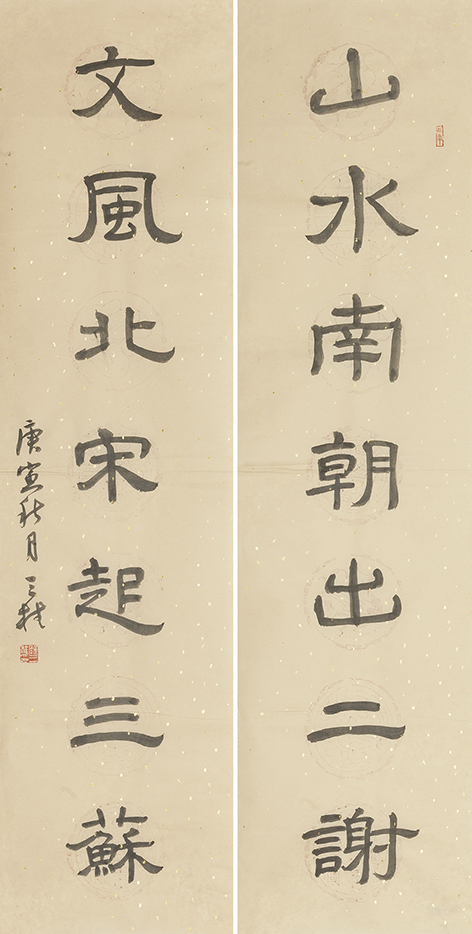 山水南朝出二謝
文風北宋起三蘇
庚寅秋月